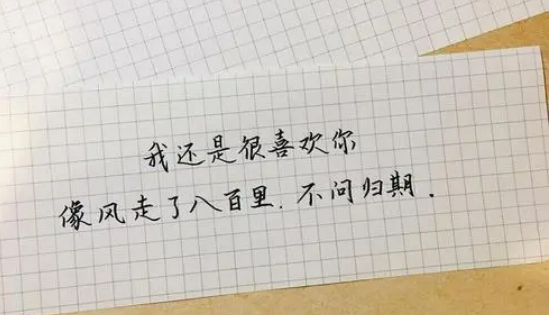 我还是很喜欢你
像风走了八百里.不问归期.